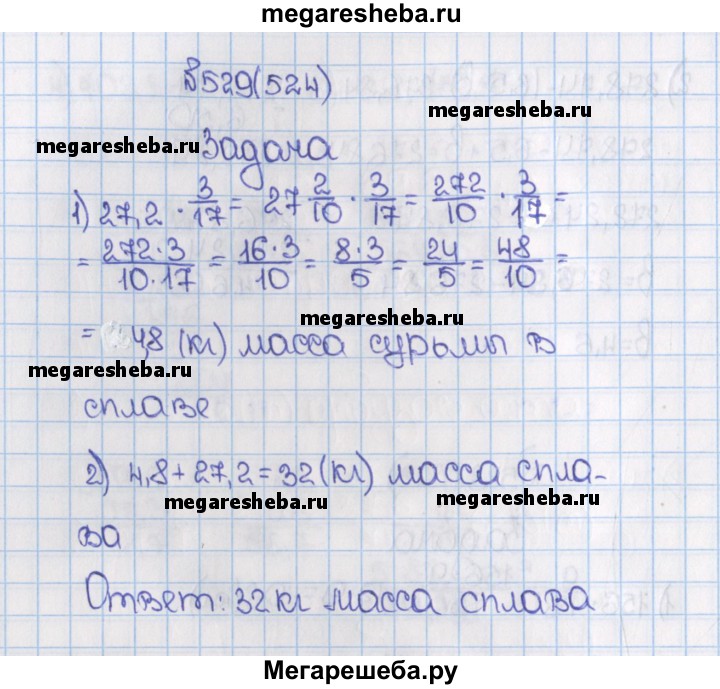 megaresheba.ru
№529(524)
megaresheba.ru
megaresheba.ru
Задача
1) 27,2 · 3/17 = 27 2/10 · 3/17 = 272/10 · 3/17 =
= 272·3/10·17 = 16·3/10 = 8·3/5 = 24/5 = 48/10 =
megaresheba.ru
= 4,8 (кг) масса сурьмы в
megaresheba.ru
сплаве
2) 4,8 + 27,2 = 32 (кг) масса спла-
megaresheba.ru
megaresheba.ru
ва
Ответ: 32 кг масса сплава
Мегарешеба.ру